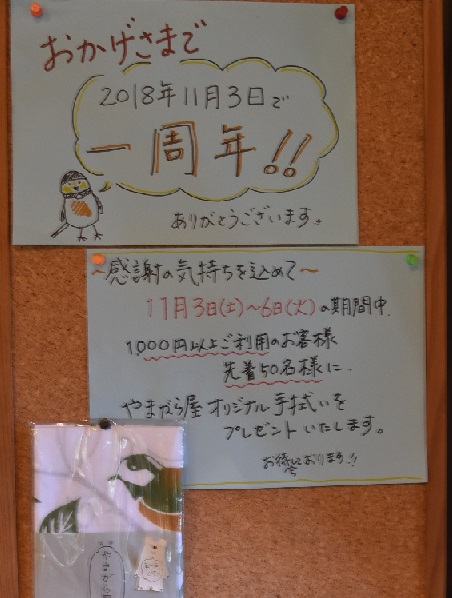 おかげさまで
2018年11月3日で
一周年!!
ありがとうございます。
~感謝の気持ちを込めて~
11月3日(土)~6日(火)の期間中、
1,000円以上ご利用のお客様
先着50名様に、
やまがら屋オリジナル手拭いを
プレゼントいたします。
お待ちしております!!
やまがら